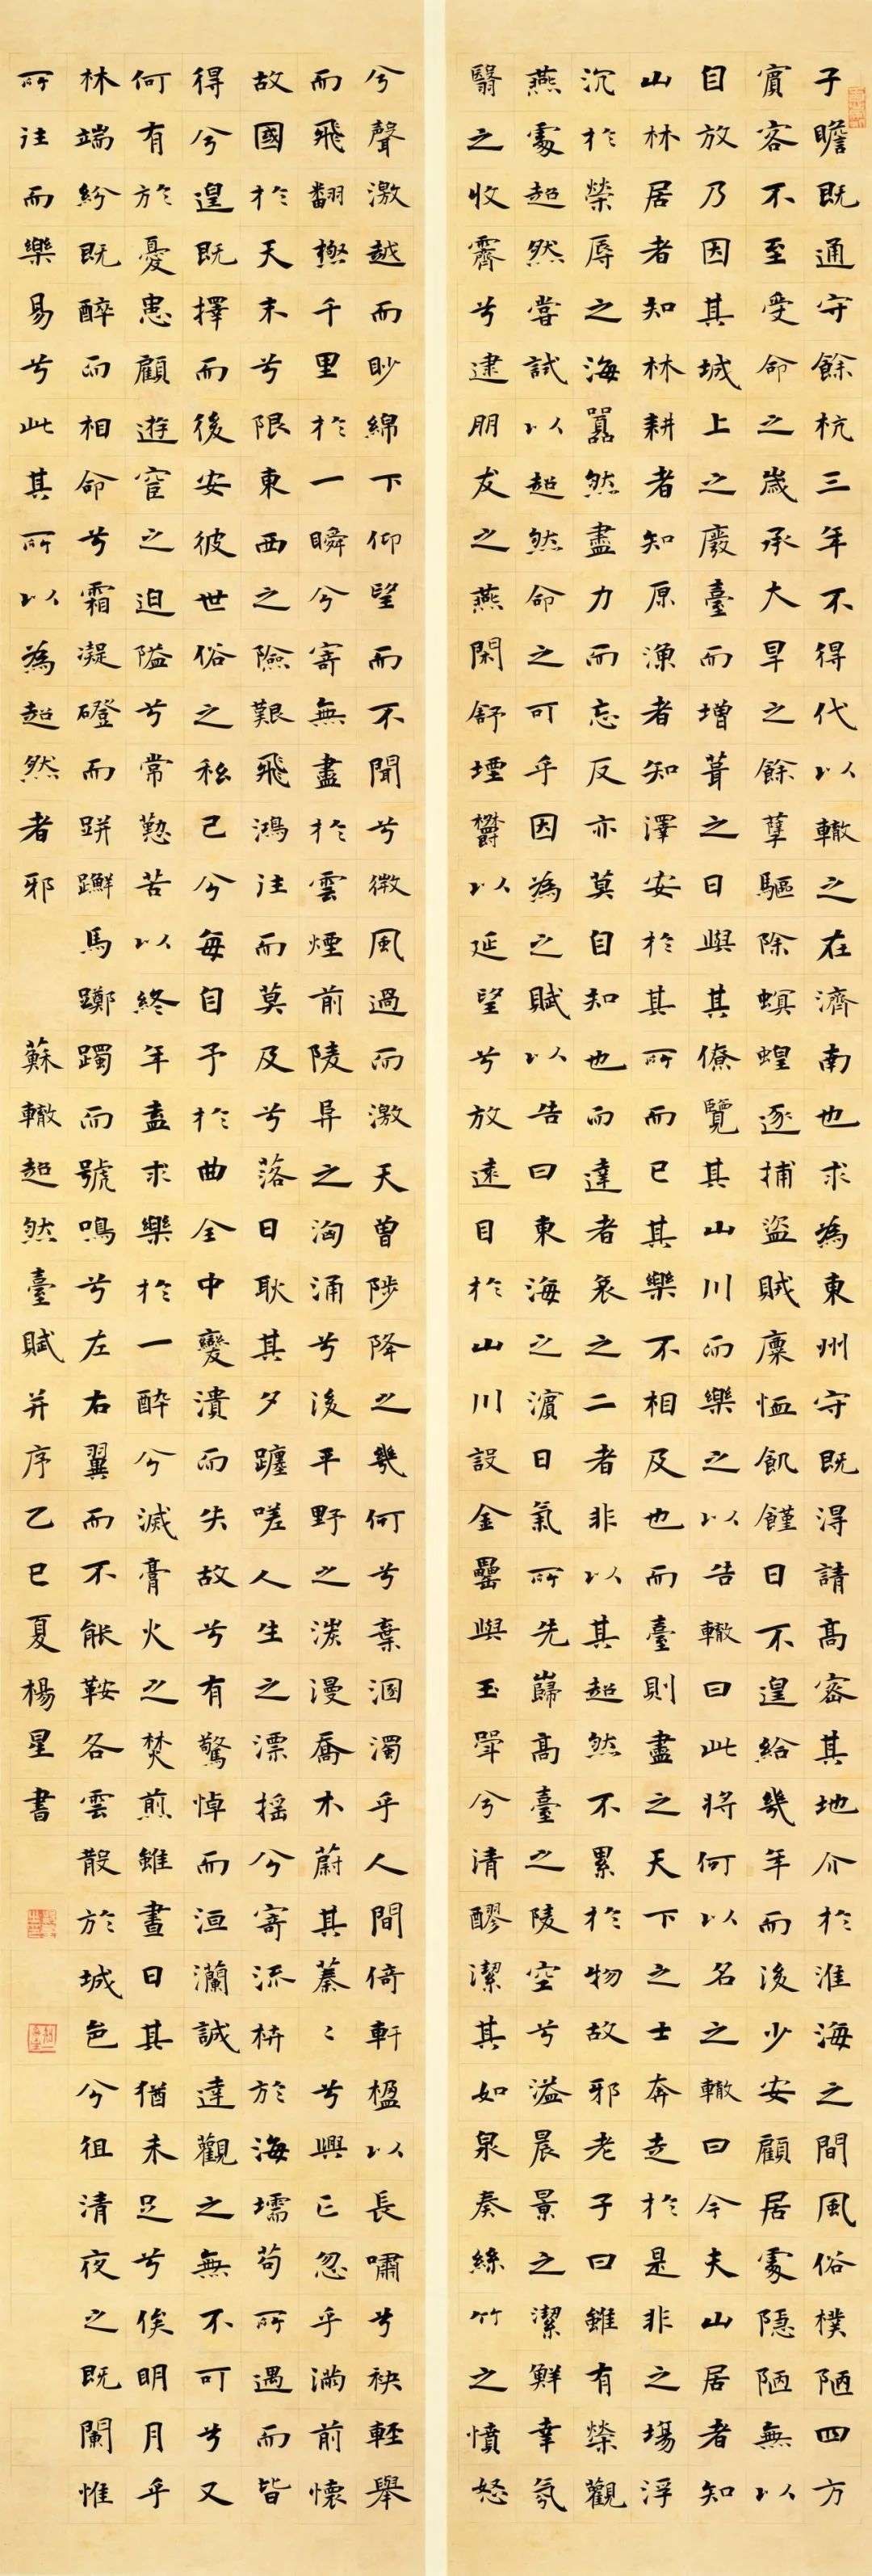 子瞻既通守餘杭三年不得代以轍之在濟南也求為東州守既得請高密其地介於淮海之間風俗樸陋四方
賓客不至受命之歲承大旱之餘孽驅除螟蝗逐捕盜賊廩恤飢饉日不遑給幾年而後少安顧居處隱陋無以
自放乃因其城上之廢臺而增葺之日與其僚覽其山川而樂之以告轍曰此將何以名之轍曰今夫山居者知
山林居者知林耕者知原漁者知澤安於其所而已其樂不相及也而臺則盡之天下之士奔走於是非之場浮
沉於榮辱之海囂然盡力而忘反亦莫自知也而達者哀之二者非以其超然不累於物故邪老子曰雖有榮觀
燕處超然嘗試以超然命之可乎因為之賦以告曰東海之濱日氣所先巋高臺之陵空兮溢晨景之潔鮮幸氛
翳之收霽兮逮朋友之燕閑舒堙鬱以延望兮放遠目於山川設金罍與玉斝兮清醪潔其如泉奏絲竹之憤怒
兮聲激越而眇綿下仰望而不聞兮微風過而激天曾陟降之幾何兮棄溷濁乎人間倚軒楹以長嘯兮袂輕舉
而飛翻極千里於一瞬兮寄無盡於雲煙前陵阜之洶涌兮後平野之湠漫喬木蔚其蓁〻兮興亡忽乎滿前懷
故國於天末兮限東西之險艱飛鴻往而莫及兮落日耿其夕躔嗟人生之漂搖兮寄流枿於海壖苟所遇而皆
得兮遑既擇而後安彼世俗之私己兮每自予於曲全中變潰而失故兮有驚悼而洹瀾誠達觀之無不可兮又
何有於憂患顧遊宦之迫隘兮常勤苦以終年盍求樂於一醉兮滅膏火之焚煎雖晝日其猶未足兮俟明月乎
林端紛既醉而相命兮霜凝磴而跰躚馬躑躅而號鳴兮左右翼而不能鞍各雲散於城邑兮徂清夜之既闌惟
所往而樂易兮此其所以為超然者邪 蘇轍超然臺賦并序乙巳夏楊星書